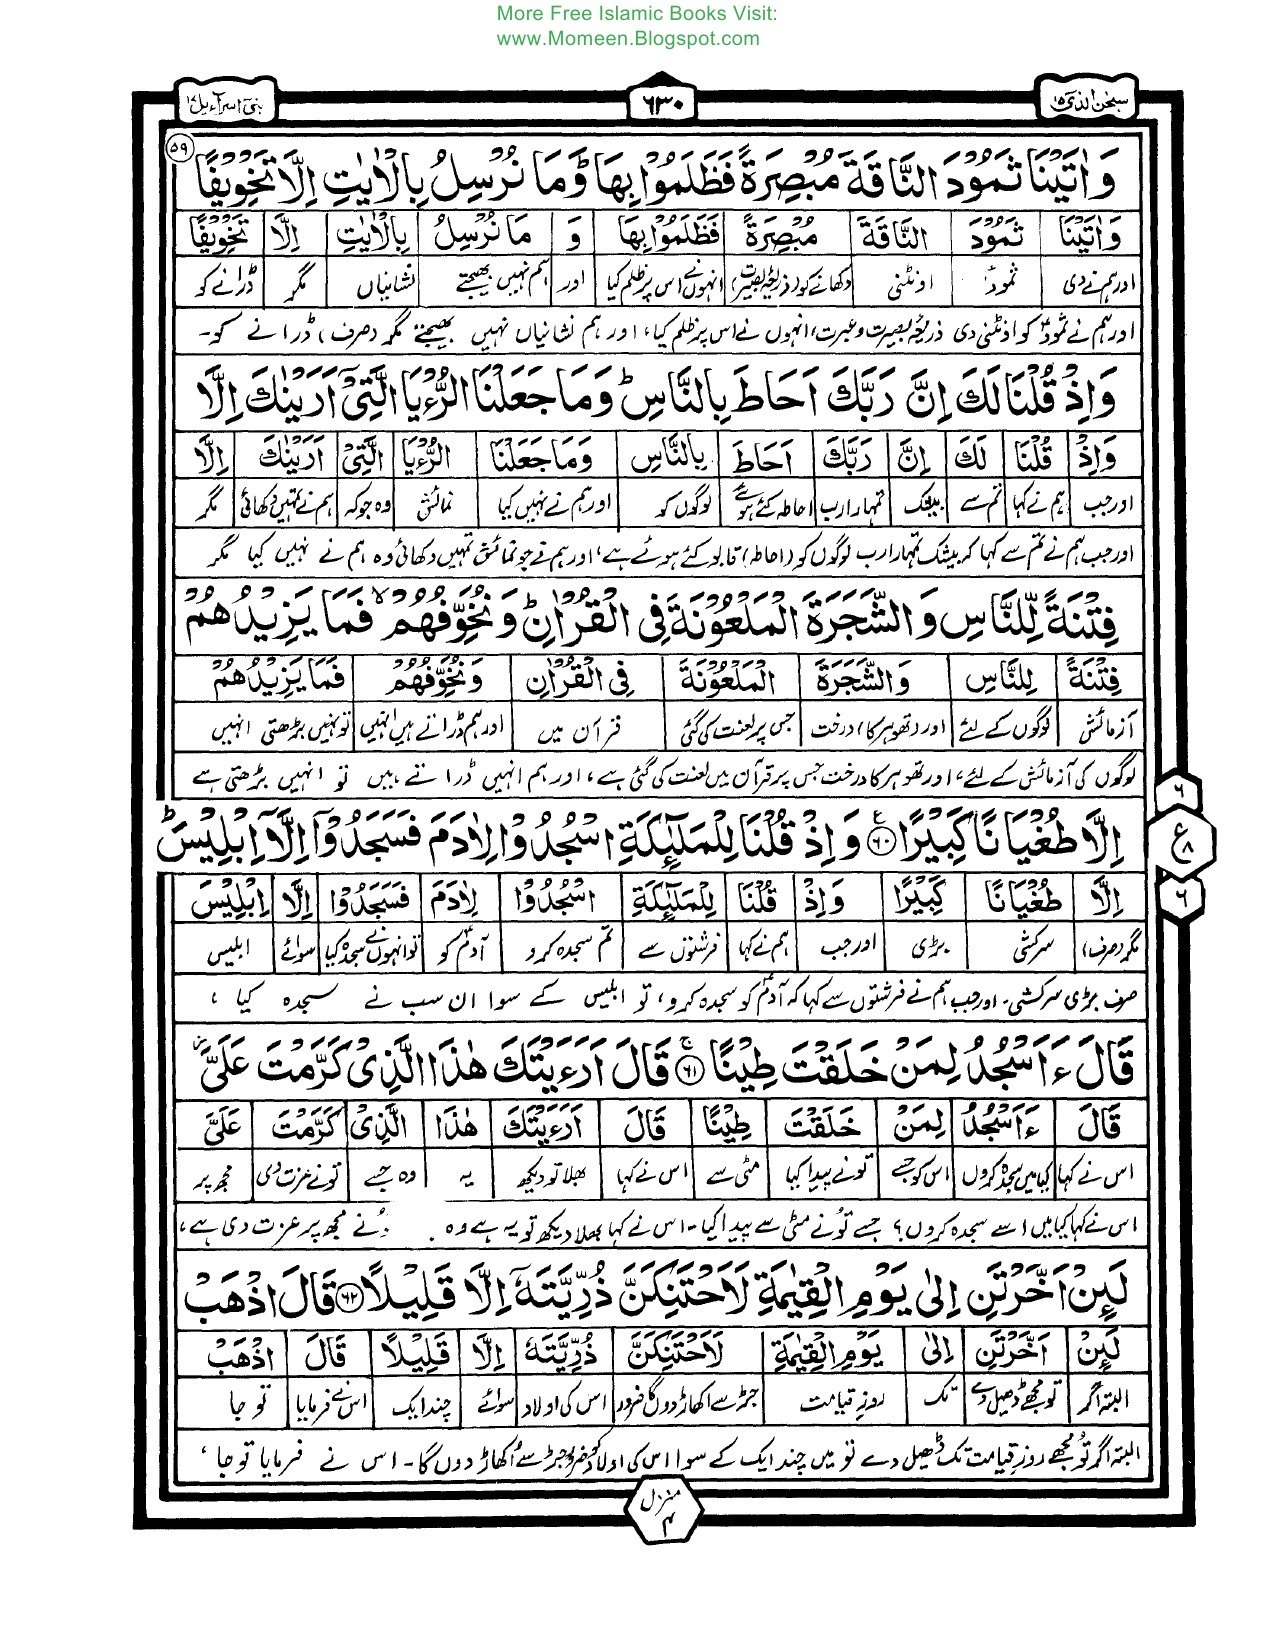 More Free Islamic Books Visit:
www.Momeen.Blogspot.com
سبحٰن الذی ۱۵
۶۳۰
بنیٓ اسرآءیل ۱۷
وَاٰتَيْنَا ثَمُوْدَ النَّاقَةَ مُبْصِرَةً فَظَلَمُوْا بِهَا ؕ وَمَا نُرْسِلُ بِالْاٰيٰتِ اِلَّا تَخْوِيْفًا ۵۹
وَاٰتَيْنَا ثَمُوْدَ النَّاقَةَ مُبْصِرَةً فَظَلَمُوْا بِهَا وَ مَا نُرْسِلُ بِالْاٰيٰتِ اِلَّا تَخْوِيْفًا
اور ہم نے دی ثمودؑ اونٹنی دکھانے کو (ذریعۂ بصیرت) انہوں نے اس پر ظلم کیا اور ہم نہیں بھیجتے نشانیاں مگر ڈرانے کو
اور ہم نے ثمودؑ کو اونٹنی دی ذریعۂ بصیرت و عبرت، انہوں نے اس پر ظلم کیا، اور ہم نشانیاں نہیں بھیجتے مگر (صرف) ڈرانے کو۔
وَاِذْ قُلْنَا لَكَ اِنَّ رَبَّكَ اَحَاطَ بِالنَّاسِ ؕ وَمَا جَعَلْنَا الرُّءْيَا الَّتِيْٓ اَرَيْنٰكَ اِلَّا
وَاِذْ قُلْنَا لَكَ اِنَّ رَبَّكَ اَحَاطَ بِالنَّاسِ وَمَا جَعَلْنَا الرُّءْيَا الَّتِيْٓ اَرَيْنٰكَ اِلَّا
اور جب ہم نے کہا تم سے بیشک تمہارا رب احاطہ کئے ہوئے لوگوں کو اور ہم نے نہیں کیا نمائش وہ جو کہ ہم نے تمہیں دکھائی مگر
اور جب ہم نے تم سے کہا کہ بیشک تمہارا رب لوگوں کو (احاطہ) قابو کئے ہوئے ہے، اور ہم نے جو نمائش تمہیں دکھائی وہ ہم نے نہیں کیا مگر
فِتْنَةً لِّلنَّاسِ وَالشَّجَرَةَ الْمَلْعُوْنَةَ فِي الْقُرْاٰنِ ؕ وَنُخَوِّفُهُمْ ۙ فَمَا يَزِيْدُهُمْ
فِتْنَةً لِلنَّاسِ وَالشَّجَرَةَ الْمَلْعُوْنَةَ فِي الْقُرْاٰنِ وَنُخَوِّفُهُمْ فَمَا يَزِيْدُهُمْ
آزمائش لوگوں کے لئے اور (تھوہر کا) درخت جس پر لعنت کی گئی قرآن میں اور ہم ڈراتے ہیں انہیں تو نہیں بڑھتی انہیں
لوگوں کی آزمائش کے لئے، اور تھوہر کا درخت جس پر قرآن میں لعنت کی گئی ہے، اور ہم انہیں ڈراتے ہیں تو انہیں بڑھتی ہے
اِلَّا طُغْيَانًا كَبِيْرًا ۶۰ ع وَاِذْ قُلْنَا لِلْمَلٰٓئِكَةِ اسْجُدُوْا لِاٰدَمَ فَسَجَدُوْٓا اِلَّآ اِبْلِيْسَ ؕ
۶
ع ۸
۶
اِلَّا طُغْيَانًا كَبِيْرًا وَاِذْ قُلْنَا لِلْمَلٰٓئِكَةِ اسْجُدُوْا لِاٰدَمَ فَسَجَدُوْا اِلَّآ اِبْلِيْسَ
مگر (صرف) سرکشی بڑی اور جب ہم نے کہا فرشتوں سے تم سجدہ کرو آدمؑ کو تو انہوں نے سجدہ کیا سوائے ابلیس
صرف بڑی سرکشی۔ اور جب ہم نے فرشتوں سے کہا کہ آدمؑ کو سجدہ کرو، تو ابلیس کے سوا ان سب نے سجدہ کیا،
قَالَ ءَاَسْجُدُ لِمَنْ خَلَقْتَ طِيْنًا ۶۱ ج قَالَ اَرَءَيْتَكَ هٰذَا الَّذِيْ كَرَّمْتَ عَلَيَّ ز
قَالَ ءَاَسْجُدُ لِمَنْ خَلَقْتَ طِيْنًا قَالَ اَرَءَيْتَكَ هٰذَا الَّذِيْ كَرَّمْتَ عَلَيَّ
اس نے کہا کیا میں سجدہ کروں اس کو جسے تونے پیدا کیا مٹی سے اس نے کہا بھلا تو دیکھ یہ وہ جسے تونے عزت دی مجھ پر
اس نے کہا کیا میں اسے سجدہ کروں؟ جسے تُونے مٹی سے پیدا کیا۔ اس نے کہا بھلا دیکھ تو یہ ہے وہ نے مجھ پر عزت دی ہے،
لَئِنْ اَخَّرْتَنِ اِلٰى يَوْمِ الْقِيٰمَةِ لَاَحْتَنِكَنَّ ذُرِّيَّتَهٗٓ اِلَّا قَلِيْلًا ۶۲ قَالَ اذْهَبْ
لَئِنْ اَخَّرْتَنِ اِلٰى يَوْمِ الْقِيٰمَةِ لَاَحْتَنِكَنَّ ذُرِّيَّتَهٗٓ اِلَّا قَلِيْلًا قَالَ اذْهَبْ
البتہ اگر تو مجھے ڈھیل دے تک روزِ قیامت جڑ سے اکھاڑ دوں گا ضرور اس کی اولاد سوائے چند ایک اس نے فرمایا تو جا
البتہ اگر تُو مجھے روزِ قیامت تک ڈھیل دے تو میں چند ایک کے سوا اس کی اولاد کو ضرور جڑ سے اُکھاڑ دوں گا۔ اس نے فرمایا تو جا،
منزل ۴